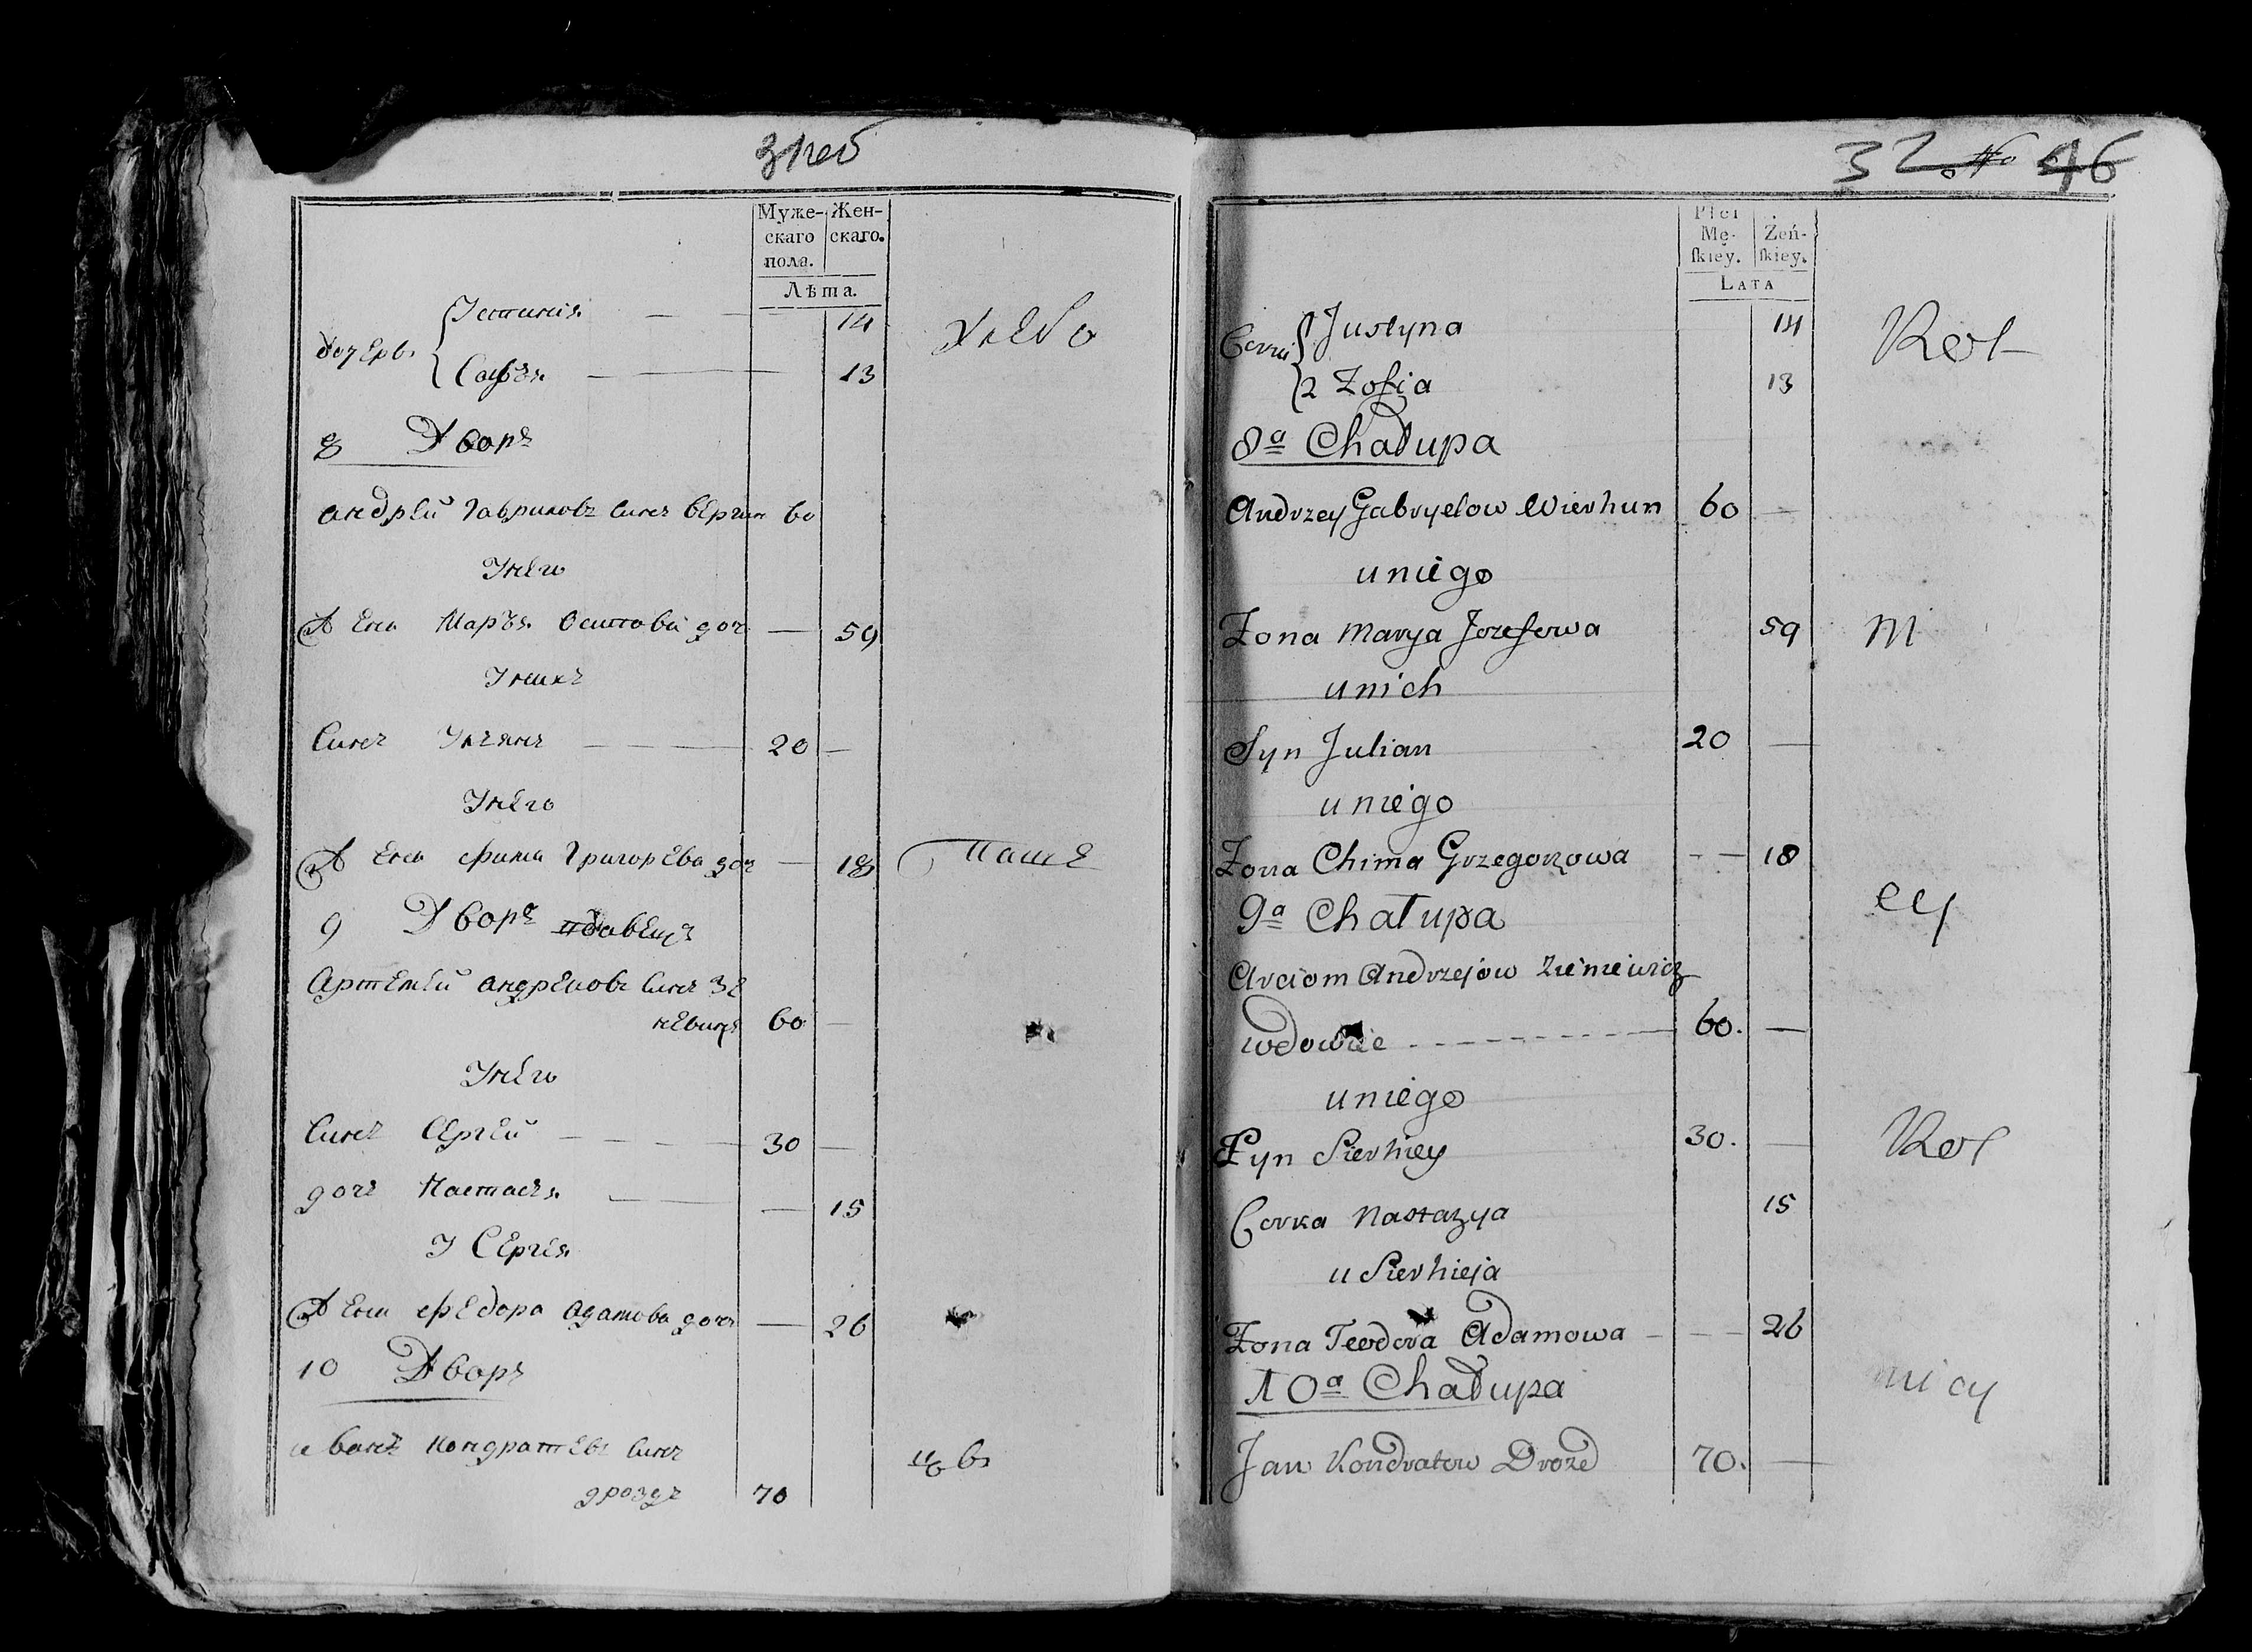 31об
Муже- Жен-
скаго скаго.
пола.
Лѣта.
Устинія 14
дочерѣ Хлебо
Софья 13
8 Дворъ
Андрей Гавриловъ сынъ Вергун 60
У него
Жена Марья Осипова доч — 59
У нихъ
Сынъ Ульянъ 20 —
У него
Жена Фима Григорьева доч — 18 Паше
9 Дворъ вдовецъ
Артемей Андреновъ сынъ Зе
невичъ 60 —
У него
Сынъ Сергей 30 —
дочъ Настасья — 15
У Сергея
Жена Федора Адамова дочъ — 26
10 Дворъ
Иванъ Кондратьевъ сынъ цовъ
дроздъ 70
32 46
Płci
Mę- Żeń-
ſkiey. ſkiey.
LATA
Justyna 14
Corki Rol-
2 Zofia 13
8a Chałupa
Andrzey Gabryelow Wierhun 60 —
u niego
Zona Marya Jozefowa 59 ni
u nich
Syn Julian 20 —
u niego
Zona Chima Grzegorzowa — 18
9a Chałupa cy
Arciom Andrzejow Zieniewicz
wdowiec 60. —
u niego
Syn Sierhiey 30. — Rol
Corka Nastazya 15
u Sierhieja
Zona Teodora Adamowa — 26
10a Chałupa nicy
Jan Kondratow Drozd 70. —